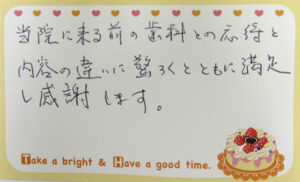 当院に来る前の歯科との応待と
内容の違いに驚ろくとともに満足
し感謝します。
Take a bright & Have a good time.